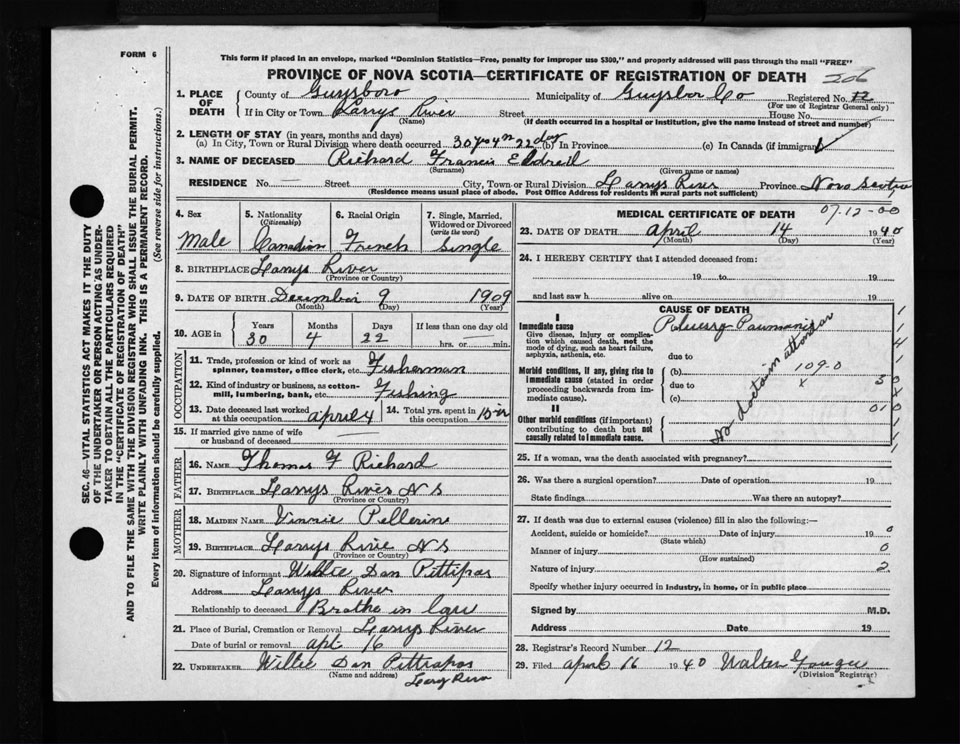 FORM 6
This form if placed in an envelope, marked "Dominion Statistics—Free, penalty for improper use $300," and properly addressed will pass through the mail "FREE"
PROVINCE OF NOVA SCOTIA—CERTIFICATE OF REGISTRATION OF DEATH 206
1. PLACE OF DEATH
County of Guysboro Municipality of Guysbor Co Registered No. 12
(For use of Registrar General only)
If in City or Town Larrys River Street House No.
(Name) (If death occurred in a hospital or institution, give the name instead of street and number)
2. LENGTH OF STAY (in years, months and days)
(a) In City, Town or Rural Division where death occurred 30 y 4 m 22 day (b) In Province (c) In Canada (if immigrant)
3. NAME OF DECEASED Richard Francis Eldred
(Surname) (Given name or names)
RESIDENCE No. Street City, Town or Rural Division Larrys River Province Nova Scotia
(Residence means usual place of abode. Post Office Address for Residents in rural parts not sufficient)
4. Sex
Male
5. Nationality
(Citizenship)
Canadian
6. Racial Origin
French
7. Single, Married, Widowed or Divorced
(write the word)
Single
8. BIRTHPLACE Larrys River
(Province or Country)
9. DATE OF BIRTH December 9 1909
(Month) (Day) (Year)
10. AGE in
Years Months Days If less than one day old
30 4 22 hrs. or min.
OCCUPATION
11. Trade, profession or kind of work as spinner, teamster, office clerk, etc. Fisherman
12. Kind of industry or business, as cotton-mill, lumbering, bank, etc. Fishing
13. Date deceased last worked at this occupation April 4
14. Total yrs. spent in this occupation 15 yr
15. If married give name of wife or husband of deceased
FATHER
16. NAME Thomas F Richard
17. BIRTHPLACE Larrys River N S
(Province or Country)
MOTHER
18. MAIDEN NAME Vinnie Pellerine
19. BIRTHPLACE Larrys Rive N S
(Province or Country)
20. Signature of informant Willie Dan Pettipas
Address Larrys River
Relationship to deceased Brothe in law
21. Place of Burial, Cremation or Removal Larrys River
Date of burial or removal apl 16
22. UNDERTAKER Willie Dan Pettipas
(Name and address)
Larry River
MEDICAL CERTIFICATE OF DEATH 07-12-00
23. DATE OF DEATH April 14 1940
(Month) (Day) (Year)
24. I HEREBY CERTIFY that I attended deceased from:
19 to 19
and last saw h alive on 19
CAUSE OF DEATH
I
Immediate cause
Give disease, injury or complication which caused death, not the mode of dying, such as heart failure, asphyxia, asthenia, etc.
due to
Morbid conditions, if any, giving rise to immediate cause (stated in order proceeding backwards from immediate cause).
(b) 109-0
due to x
(c)
II
Other morbid conditions (if important) contributing to death but not causally related to immediate cause.
No doctor in attendance
25. If a woman, was the death associated with pregnancy?
26. Was there a surgical operation? Date of operation 19
State findings Was there an autopsy?
27. If death was due to external causes (violence) fill in also the following:—
Accident, suicide or homicide? Date of injury 19 0
(State which)
Manner of injury 0
(How sustained)
Nature of injury 2
Specify whether injury occurred in industry, in home, or in public place
Signed by M.D.
Address Date 19
28. Registrar's Record Number 12
29. Filed April 16 1940 Walter
(Division Registrar)
SEC. 46—VITAL STATISTICS ACT MAKES IT THE DUTY
OF THE UNDERTAKER OR PERSON ACTING AS UNDER-
TAKER TO OBTAIN ALL THE PARTICULARS REQUIRED
IN THE "CERTIFICATE OF REGISTRATION OF DEATH"
AND TO FILE THE SAME WITH THE DIVISION REGISTRAR WHO SHALL ISSUE THE BURIAL PERMIT.
WRITE PLAINLY WITH UNFADING INK. THIS IS A PERMANENT RECORD.
Every item of information should be carefully supplied. (See reverse side for instructions.)